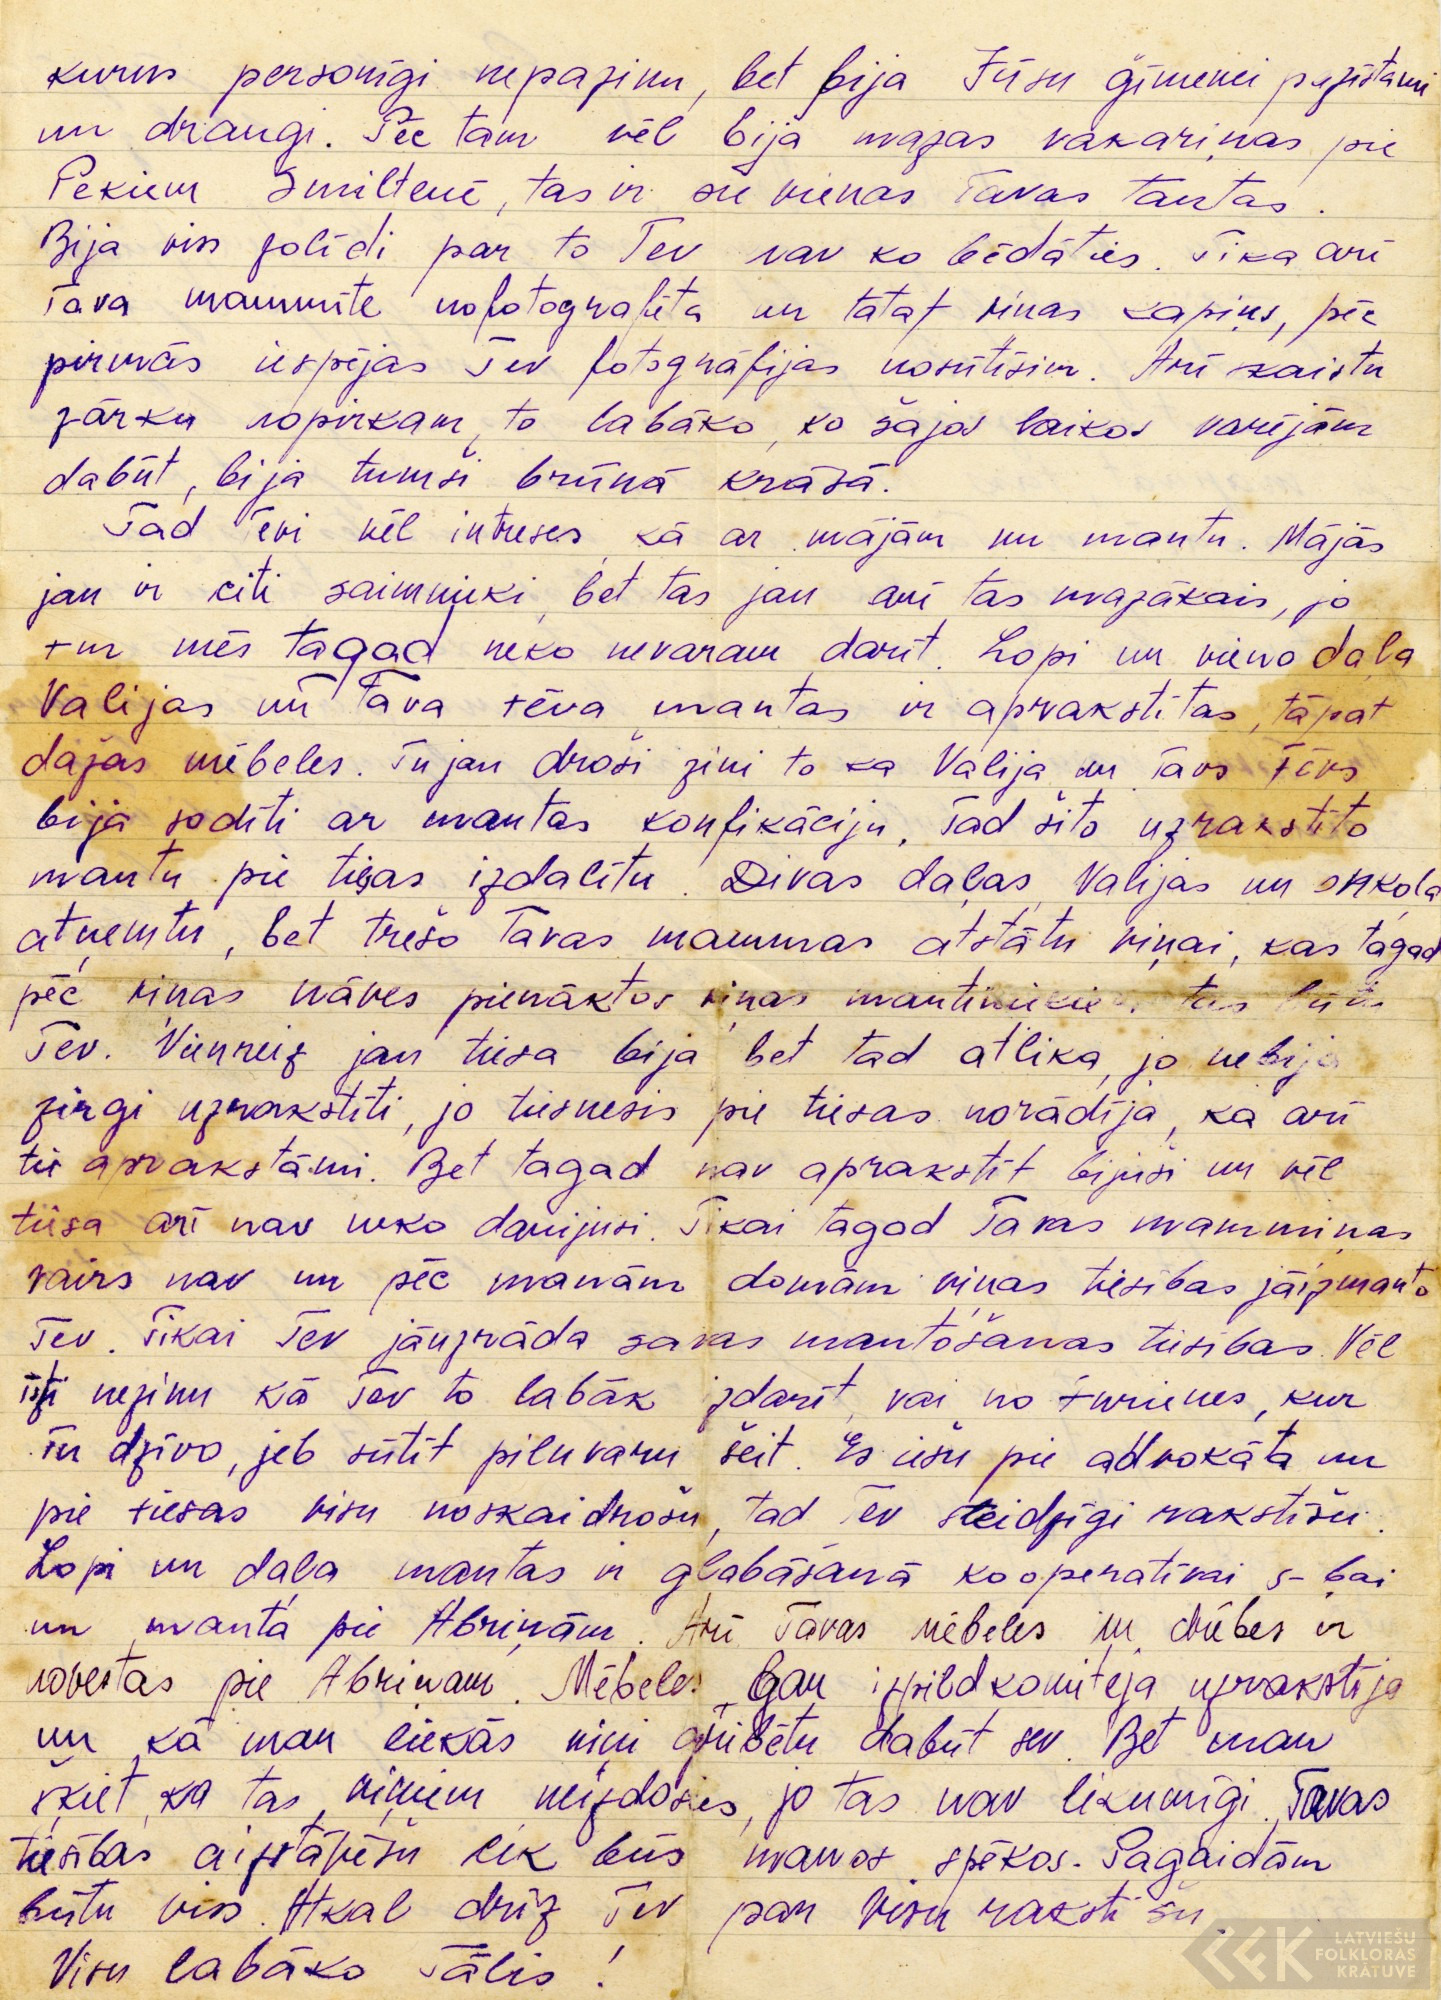 kurus personīgi nepazinu, bet bija Jūsu ģimenei pazīstami
un draugi. Pēc tam vēl bija mazas vakariņas pie
Pekiem Smiltenē, tas ir pie vienas Tavas tantas.
Bija viss solīdi par to Tev nav ko bēdāties. Tika arī
Tava mammīte nofotografēta un tāpat viņas kapiņš, pēc
pirmās iespējas Tev fotogrāfijas nosūtīsim. Arī skaistu
zārku nopirkām, to labāko, ko šajos laikos varējām
dabūt, bija tumši brūnā krāsā.
Tad Tevi vēl intreses kā ar mājām un mantu. Mājās
jau ir citi saimnieki, bet tas jau arī tas mazākais, jo
tur mēs tagad neko nevaram darīt. Lopi un viena daļa
Valijas un Tava tēva mantas ir aprakstītas, tāpat
dažas mēbeles. Tu jau droši zini to ka Valija un Tavs Tēvs
bija sodīti ar mantas konfikāciju. Tad šito uzrakstīto
mantu pie tiesas izdalītu. Divas daļas, Valijas un onkoļa
atņemtu, bet trešo Tavas mammas atstātu viņai, kas tagad
pēc viņas nāves pienāktos viņas mantiniekiem tas būtu
Tev. Vienreiz jau tiesa bija bet tad atlika, jo nebija
zirgi uzrakstīti, jo tiesnesis pie tiesas norādīja, ka arī
tie aprakstāmi. Bet tagad nav aprakstīt bijuši un vēl
tiesa arī nav neko darijusi. Tikai tagad Tavas mammiņas
vairs nav un pēc manām domām viņas tiesības jāizmanto
Tev. Tikai Tev jāuzrāda savas mantošanas tiesības. Vēl
īsti nezinu kā Tev to labāk izdarīt, vai no turienes, kur
Tu dzīvo, jeb sūtīt pilnvaru šeit. Es iešu pie advokāta un
pie tiesas visu noskaidrošu, tad Tev steidzīgi rakstīšu.
Lopi un daļa mantas ir glabāšanā kooperatīvai s-bai
un manta pie Abriņām. Arī Tavas mēbeles un drēbes ir
novestas pie Abriņām. Mēbeles gan izpildkomiteja uzrakstīja
un kā man liekās viņi gribētu dabūt sev. Bet man
šķiet, ka tas viņiem neizdosies, jo tas nav likumīgi. Tavas
tiesības aizstāvēšu cik būs manos spēkos. Pagaidām
būtu viss. Atkal drīz Tev par visu rakstīšu.
Visu labāko Tālis!
LATVIEŠU
FOLKLORAS
KRĀTUVE